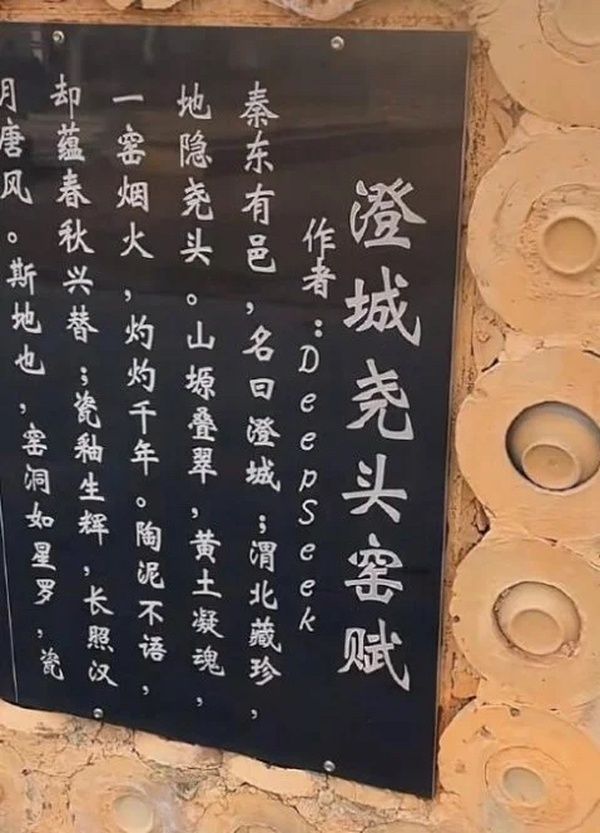 澄城尧头窑赋
作者：DeepSeek
秦东有邑，名曰澄城；渭北藏珍，
地隐尧头。山塬叠翠，黄土凝魂，
一窑烟火，灼灼千年。陶泥不语，
却蕴春秋兴替；瓷釉生辉，长照汉
月唐风。斯地也，窑洞如星罗，瓷